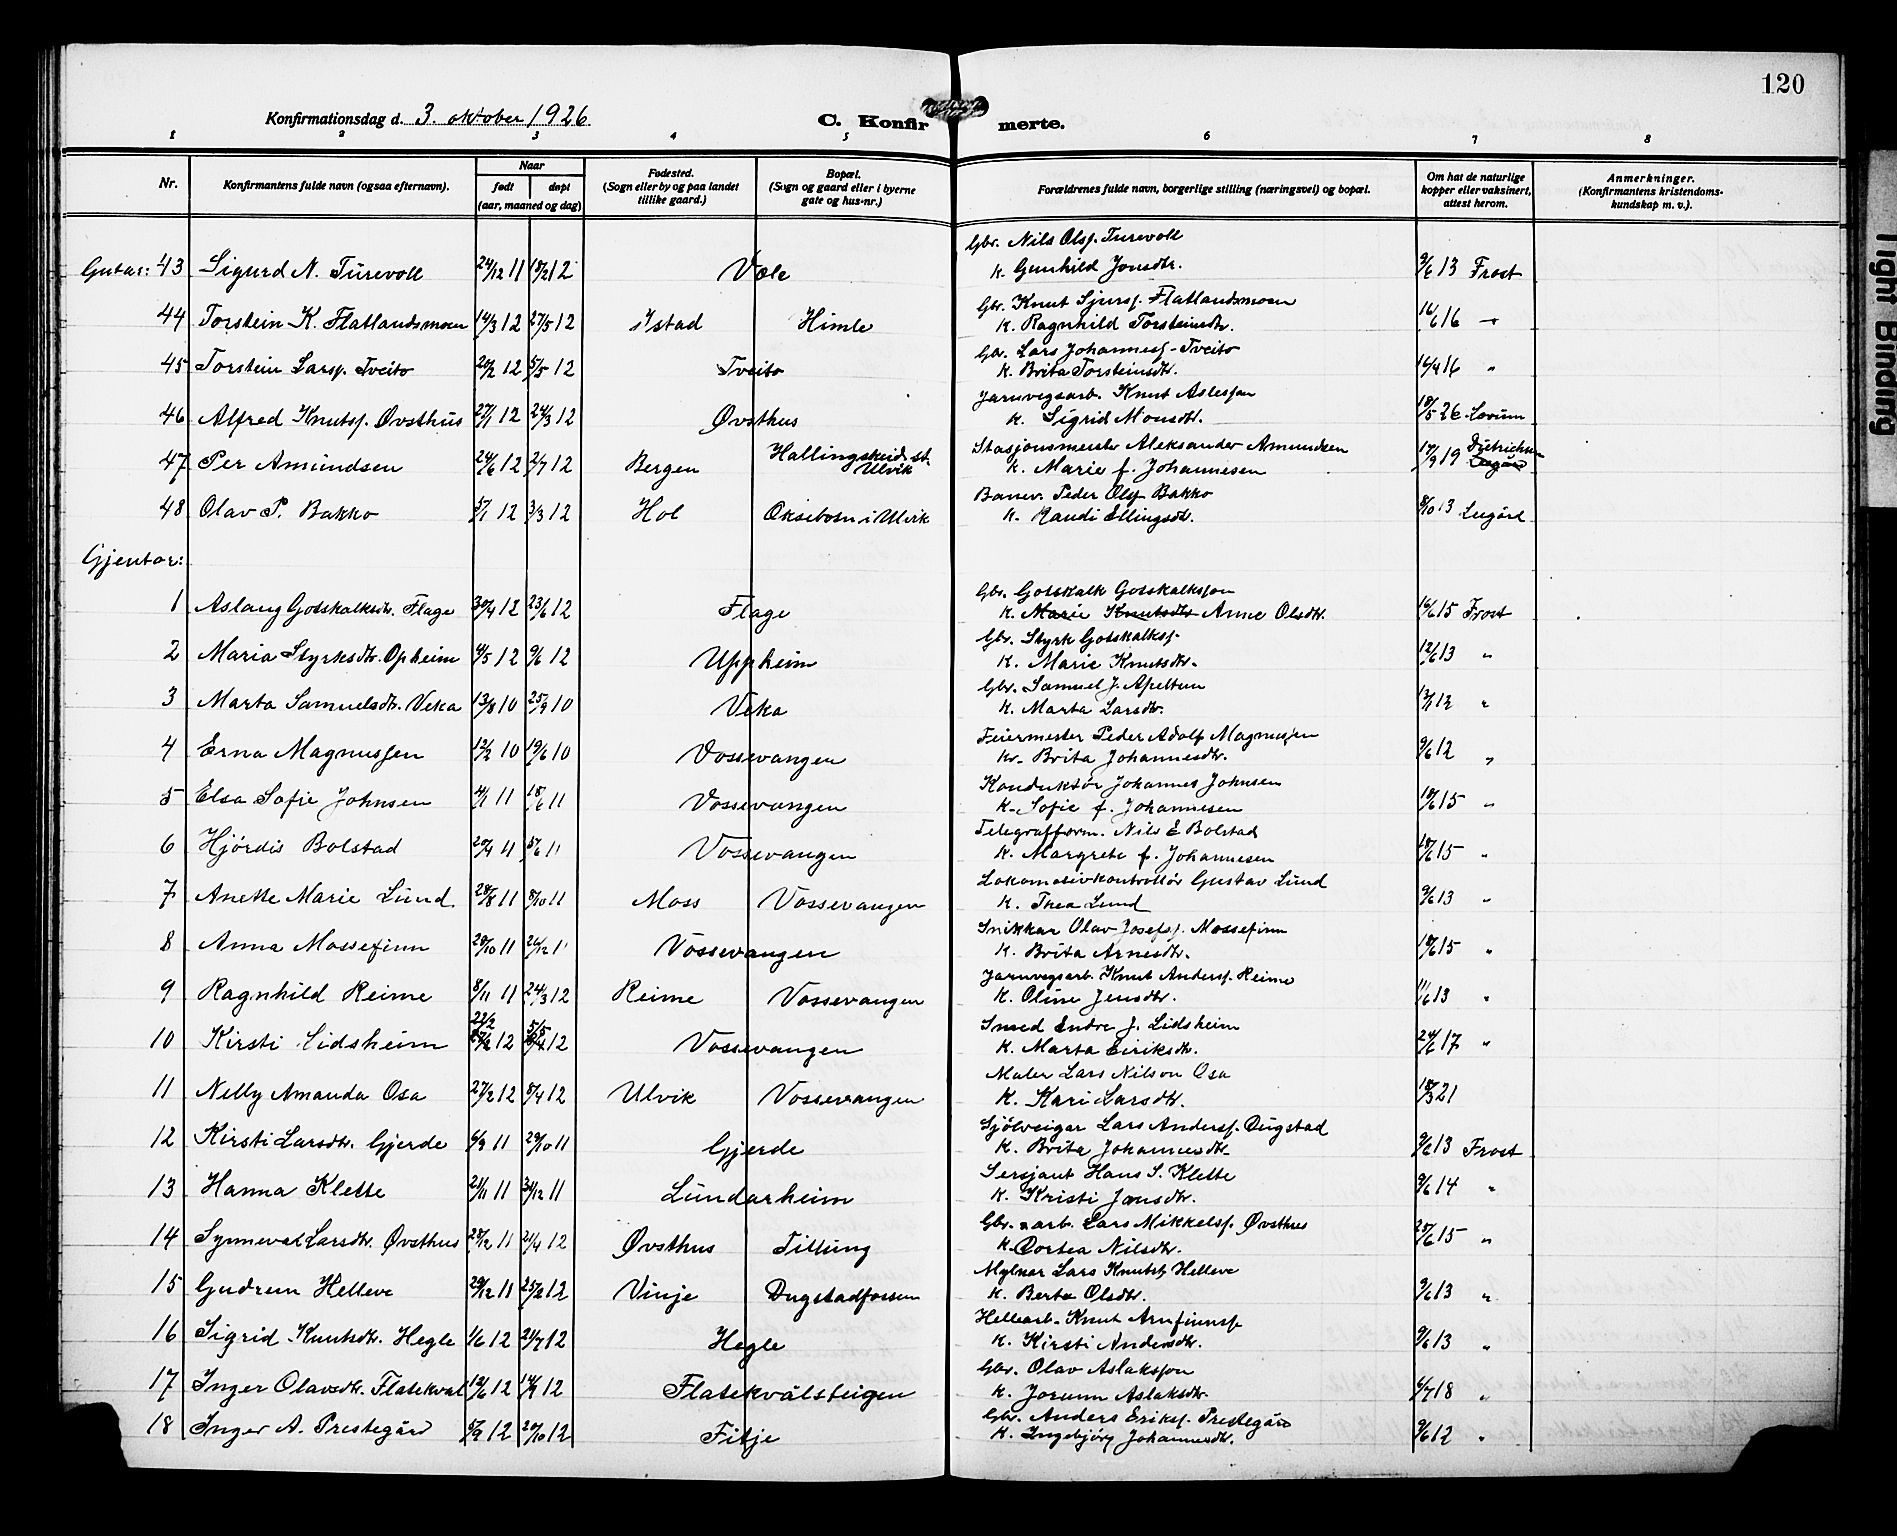 120
Konfirmationsdag d. 3. oktober 1926
C. Konfir merte.
1 2 3 4 5 6 7 8
Nr. Konfirmantens fulde navn (ogsaa efternavn). Naar født døpt (aar, maaned og dag) Fødested. (Sogn eller by og paa landet tillike gaard.) Bopæl. (Sogn og gaard eller i byerne gate og hus-nr.) Forældrenes fulde navn, borgerlige stilling (næringsvei) og bopæl. Om hat de naturlige kopper eller vaksinert, attest herom. Anmerkninger. (Konfirmantens kristendomskundskap m. v.).
Gutar: 43 Sigurd N. Turevoll 24/12 11 18/2 12 Væle Gbr. Nils Olsf. Turevoll
k. Gunhild Jonsdtr. 9/6 13 Frost
44 Torstein K. Flatlandsmoen 14/3 12 27/5 12 Istad Himle Gbr. Knut Sjursf. Flatlandsmoen
k. Ragnhild Torsteinsdtr. 16/6 16 "
45 Torstein Larsf. Tveito 20/2 12 5/5 12 Tveito Gbr. Lars Johannesf. Tveito
k. Brita Torsteinsdtr. 16/4 16 "
46 Alfred Knutsf. Øvsthus 27/1 12 24/3 12 Øvsthus Jarnvegsarb. Knut Aslesson
k. Sigrid Monsdtr. 18/5 26 Lovum
47 Per Amundsen 24/6 12 2/7 12 Bergen Hallingskeid st. Ulvik Stasjonsmester Aleksander Amundsen
k. Marie f. Johannesen 17/9 19 Dietrichson
48 Olav P. Bakko 5/1 12 3/3 12 Hol Oksebotn i Ulvik Banev. Peder Olsf. Bakko
k. Randi Ellingsdtr. 8/10 13 Lugård
Gjentor:
1 Aslaug Gotskalksdtr. Flage 30/4 12 23/6 12 Flage Gbr. Gotskalk Gotskalksson
k. Marie Knutsdtr Anne Olsdtr. 16/6 15 Frost
2 Maria Styrksdtr. Opheim 4/5 12 9/6 12 Uppheim Gbr. Styrk Gotskalksf.
k. Marie Knutsdtr. 12/6 13 "
3 Marta Samuelsdtr. Veka 13/8 10 25/9 10 Veka Gbr. Samuel J. Apeltun
k. Marta Larsdtr. "
4 Erna Magnussen 12/2 10 19/6 10 Vossevangen Feiermester Peder Adolf Magnussen
k. Brita Johannesdtr. 9/6 12 "
5 Elsa Sofie Johnsen 4/1 11 18/6 11 Vossevangen Konduktør Johannes Johnsen
k. Sofie f. Johannesen 18/6 15 "
6 Hjördis Bolstad 20/4 11 5/6 11 Vossevangen Telegrafform. Nils E Bolstad
k. Margrete f. Johannesen 18/6 15 "
7 Anette Marie Lund. 28/8 11 8/10 11 Moss Vossevangen Lokomotivkontrollör Gustav Lund
k. Thea Lund 9/6 13 "
8 Anna Mossefinn 20/10 11 26/12 11 Vossevangen Snikkar Olav Josefsf. Mossefinn
k. Brita Arnesdtr. 18/6 15 "
9 Ragnhild Reime 8/11 11 24/3 12 Reime Vossevangen Jarnvegsarb. Knut Andersf. Reime
k. Oline Jensdtr. 11/6 13 "
10 Kirsti Lidsheim 22/2 12 5/5 12 Vossevangen Smed Endre J. Lidsheim
k. Marta Eiriksdtr. 24/6 17 "
11 Nelly Amanda Osa 27/2 12 8/4 12 Ulvik Vossevangen Maler Lars Nilson Osa
k. Kari Larsdtr. 18/3 21
12 Kirsti Larsdtr. Gjerde 6/9 11 29/10 11 Gjerde Sjölveigar Lars Andersf. Dugstad
k. Brita Johannesdtr. 9/6 13 Frost
13 Hanna Klette 21/11 11 31/12 11 Lundarheim Sersjant Hans S. Klette
k. Kristi Jonsdtr. 9/6 14 "
14 Synneva Larsdtr. Øvsthus 25/12 11 21/4 12 Øvsthus Tillung Gbr. arb. Lars Mikkelsf. Øvsthus
k. Dortea Nilsdtr. 20/6 15 "
15 Gudrun Helleve 29/12 11 25/2 12 Vinje Dugstadfossen Mylnar Lars Knutsf. Helleve
k. Berta Olsdtr. 9/6 13 "
16 Sigrid Knutsdtr. Hegle 1/6 12 21/7 12 Hegle Hellearb. Knut Arnfinnsf.
k. Kirsti Andersdtr. 9/6 13 "
17 Inger Olavsdtr. Flatekval 12/6 12 14/9 12 Flatekvålsteigen Gbr. Olav Aslaksson
k. Jorunn Aslaksdtr. 6/7 18 "
18 Inger A. Prestegård 5/9 12 20/10 12 Fitje Gbr. Anders Eriksf. Prestegård
k. Ingebjörg Johannesdtr. 9/6 12 "
Tight Binding